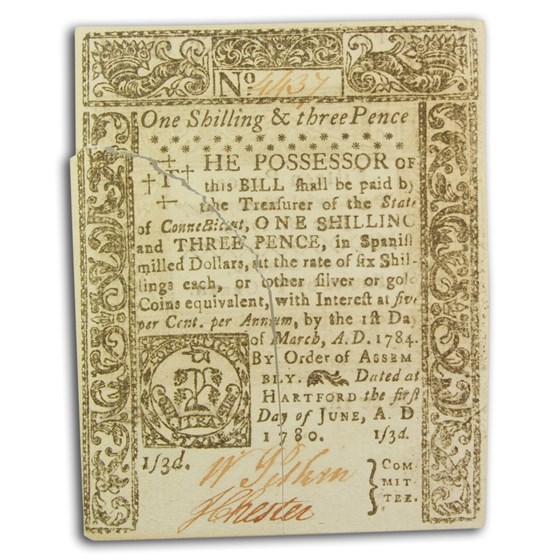 No. 4437
One Shilling & three Pence
THE POSSESSOR OF
this BILL ſhall be paid by
the Treaſurer of the State
of Connecticut, ONE SHILLING
and THREE PENCE, in Spaniſh
milled Dollars, at the rate of ſix Shil-
lings each, or other ſilver or gold
Coins equivalent, with Intereſt at five
per Cent. per Annum, by the 1ſt Day
of March, A. D. 1784.
By Order of ASSEM
BLY. Dated at
HARTFORD the firſt
Day of JUNE, A. D
1780. 1/3d.
1/3d.
W Pitkin
J Chester
COM-
MIT-
TEE.